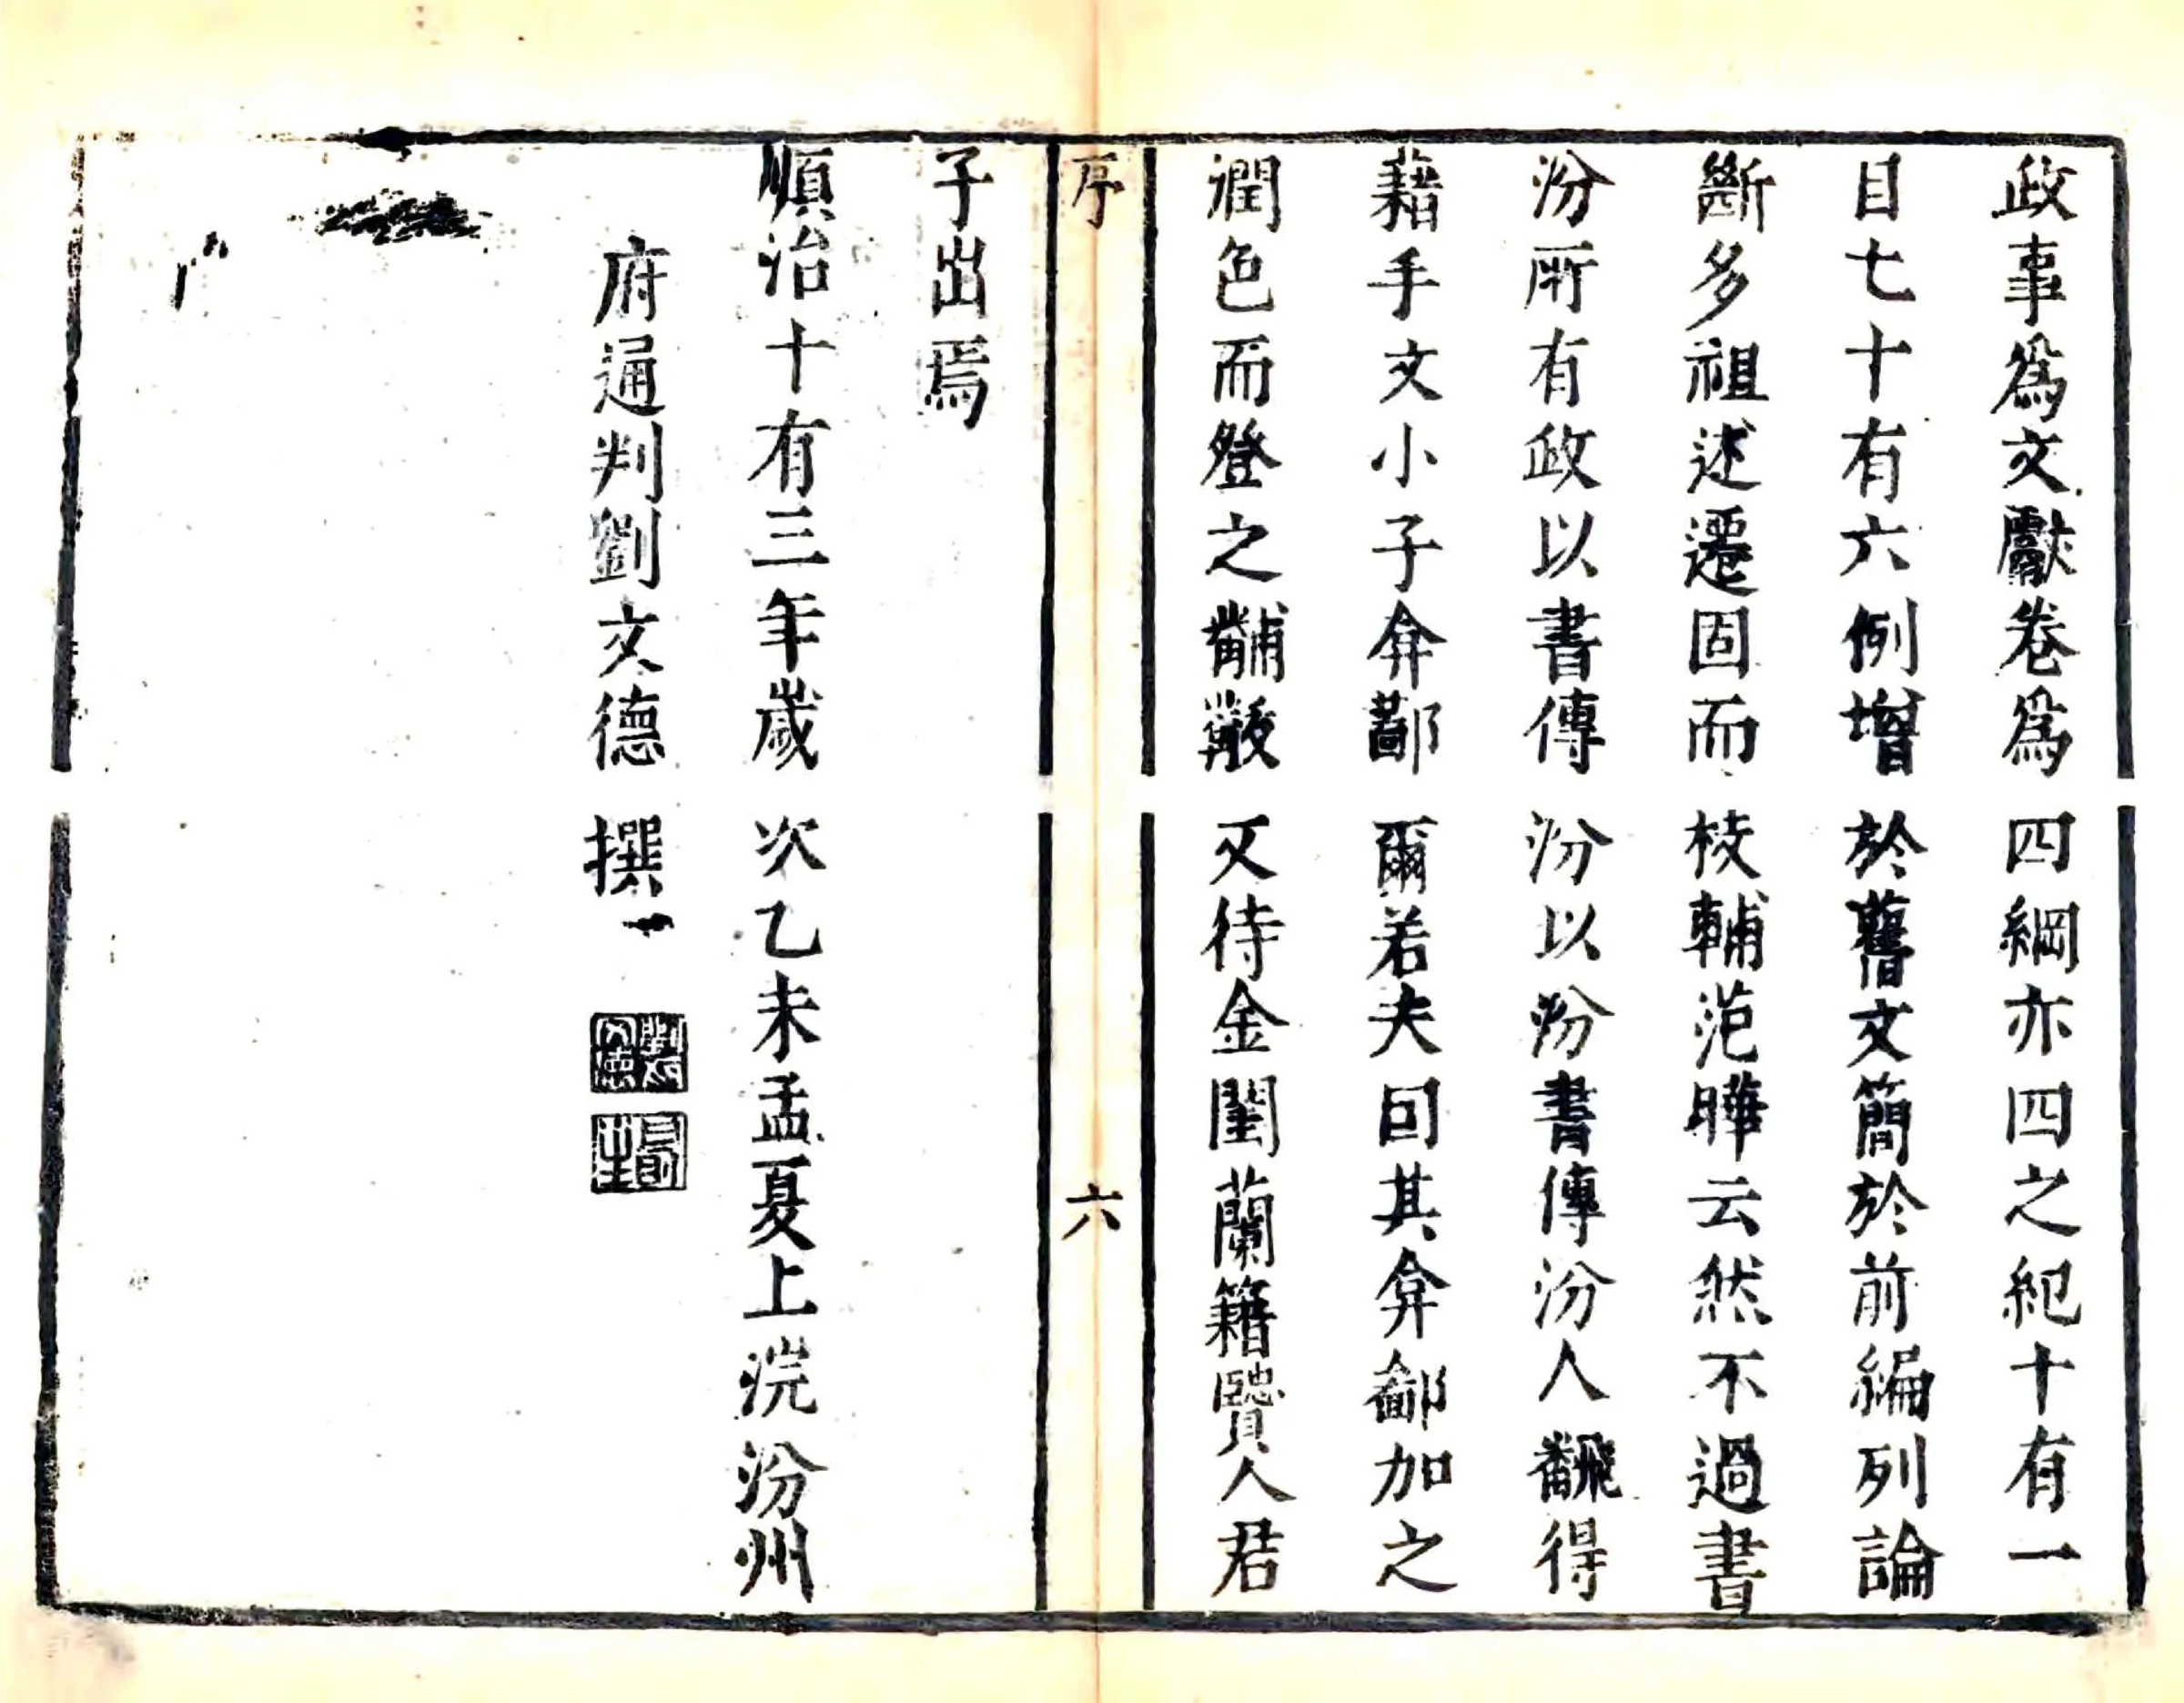 政事爲文獻卷爲四綱亦四之紀十有一
目七十有六例增於舊文簡於前編列論
斷多祖述遷固而校輔范曄云然不過書
汾所有政以書傳汾以汾書傳汾人飜得
藉手文小子弇鄙爾若夫回其弇鄙加之
潤色而登之黼黻又待金閨蘭籍賢人君
序
六
子出焉
順治十有三年歲次乙未孟夏上浣汾州
府通判劉文德撰
劉文德印